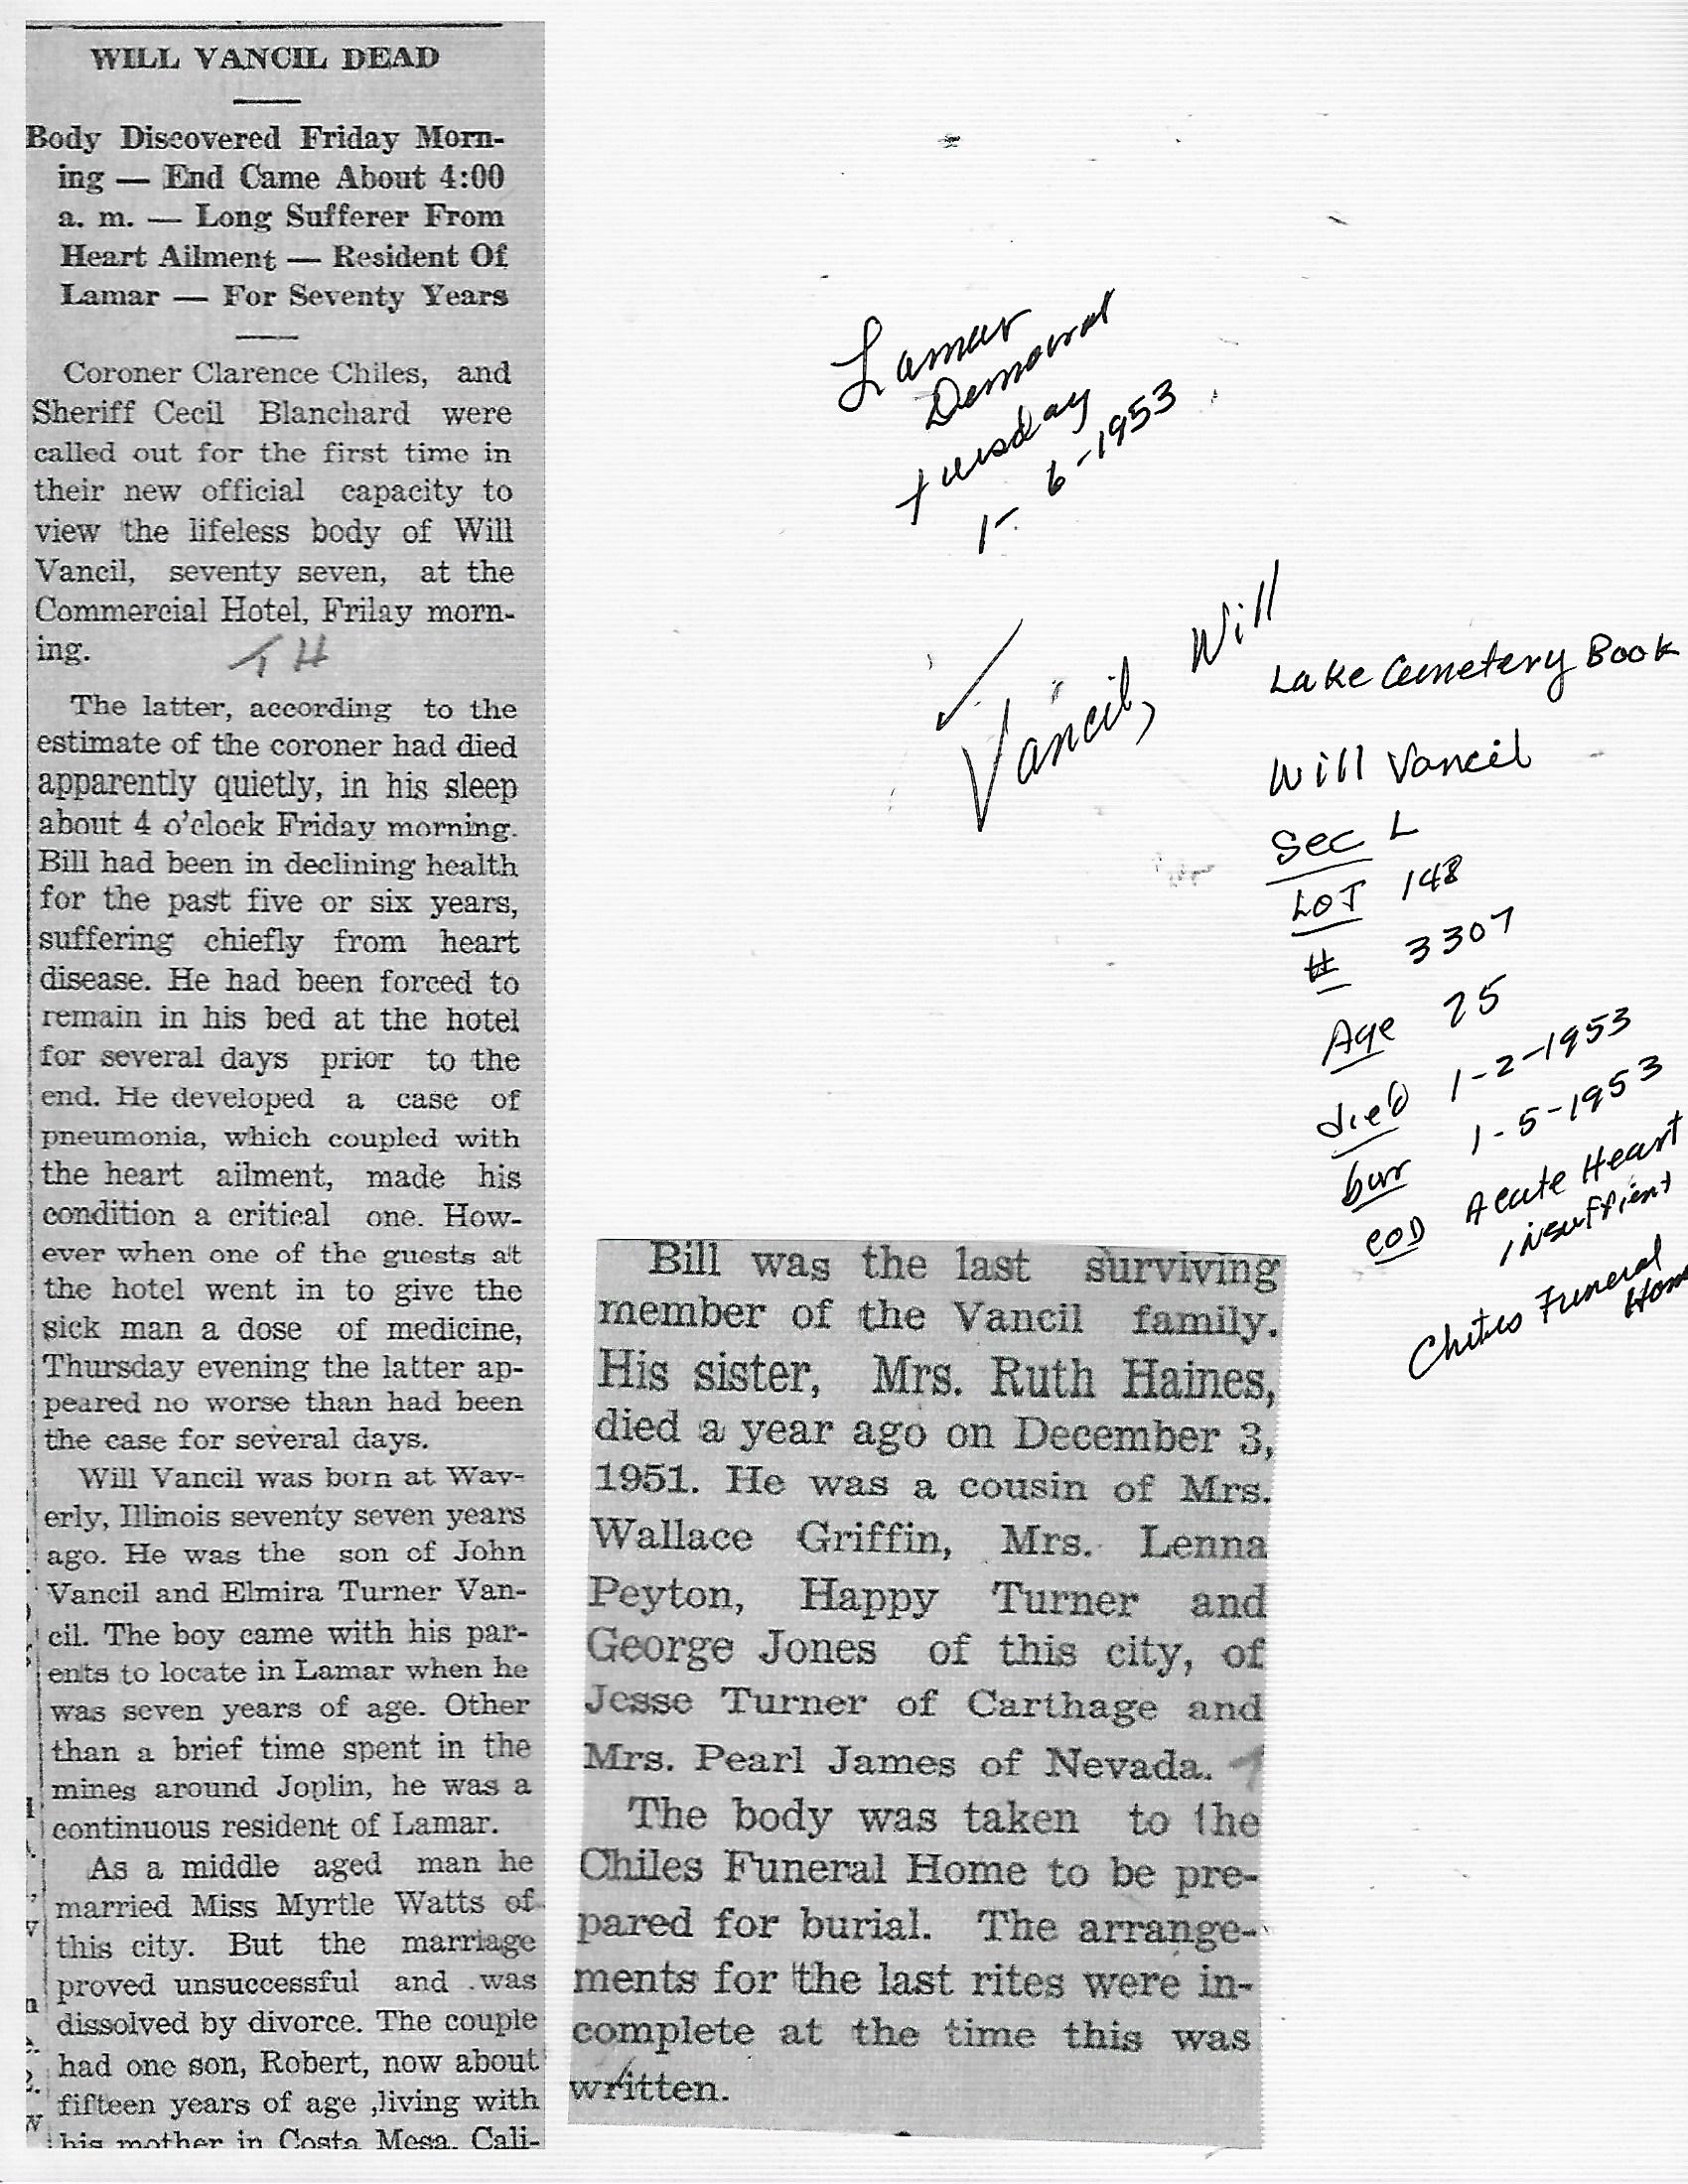 WILL VANCIL DEAD
Body Discovered Friday Morn-
ing — End Came About 4:00
a. m. — Long Sufferer From
Heart Ailment — Resident Of
Lamar — For Seventy Years
Coroner Clarence Chiles, and
Sheriff Cecil Blanchard were
called out for the first time in
their new official capacity to
view the lifeless body of Will
Vancil, seventy seven, at the
Commercial Hotel, Frilay morn-
ing.
TH
The latter, according to the
estimate of the coroner had died
apparently quietly, in his sleep
about 4 o'clock Friday morning.
Bill had been in declining health
for the past five or six years,
suffering chiefly from heart
disease. He had been forced to
remain in his bed at the hotel
for several days prior to the
end. He developed a case of
pneumonia, which coupled with
the heart ailment, made his
condition a critical one. How-
ever when one of the guests at
the hotel went in to give the
sick man a dose of medicine,
Thursday evening the latter ap-
peared no worse than had been
the case for several days.
Will Vancil was born at Wav-
erly, Illinois seventy seven years
ago. He was the son of John
Vancil and Elmira Turner Van-
cil. The boy came with his par-
ents to locate in Lamar when he
was seven years of age. Other
than a brief time spent in the
mines around Joplin, he was a
continuous resident of Lamar.
As a middle aged man he
married Miss Myrtle Watts of
this city. But the marriage
proved unsuccessful and was
dissolved by divorce. The couple
had one son, Robert, now about
fifteen years of age ,living with
his mother in Costa Mesa, Cali-
Bill was the last surviving
member of the Vancil family.
His sister, Mrs. Ruth Haines,
died a year ago on December 3,
1951. He was a cousin of Mrs.
Wallace Griffin, Mrs. Lenna
Peyton, Happy Turner and
George Jones of this city, of
Jesse Turner of Carthage and
Mrs. Pearl James of Nevada.
The body was taken to the
Chiles Funeral Home to be pre-
pared for burial. The arrange-
ments for the last rites were in-
complete at the time this was
written.
Lamar
Democrat
tuesday
1-6-1953
Vancil, Will
Lake Cemetery Book
Will Vancil
Sec L
LOT 148
# 3307
Age 75
died 1-2-1953
bur 1-5-1953
COD Acute Heart
insuffient
Funeral
Home